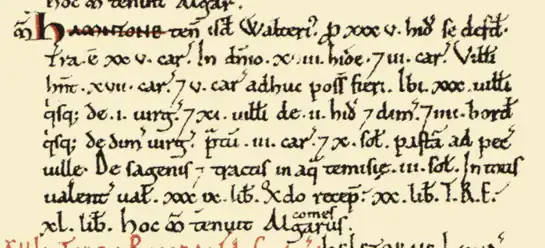 hoc ꝏ tenuit Algar.
ꝏ HAMNTONE ten̄ isd̄ Walteri⁹. ꝓ xxxv. hid̄ se defd̄.
Tra. ē xxv. car̄. In dn̄io. xviii. hidę. ⁊ iii. car̄. Vill̄i
hn̄t. xvii. car̄. ⁊ v. car̄ adhuc poss̄ fieri. Ibi. xxx. uilli
q̄sq; de. i. uirg̃. ⁊ xi. uill̄i de. ii. hid̄ ⁊ dim̄. ⁊ iiii. bord̄
q̄sq; de dim̄ uirg̃. p̃tū. iii. car̄. ⁊ x. sol̄. pasta̅ ad pec̄
uillę. De sagenis ⁊ tractis in aq̄ temisię. iii. sol̄. In totis
ualent̄ ual̄. xxxix. lib̄. Qdo recep̄. xx. lib̄. T.R.E.
xl. lib̄. Hoc ꝏ tenuit Algarus comes.